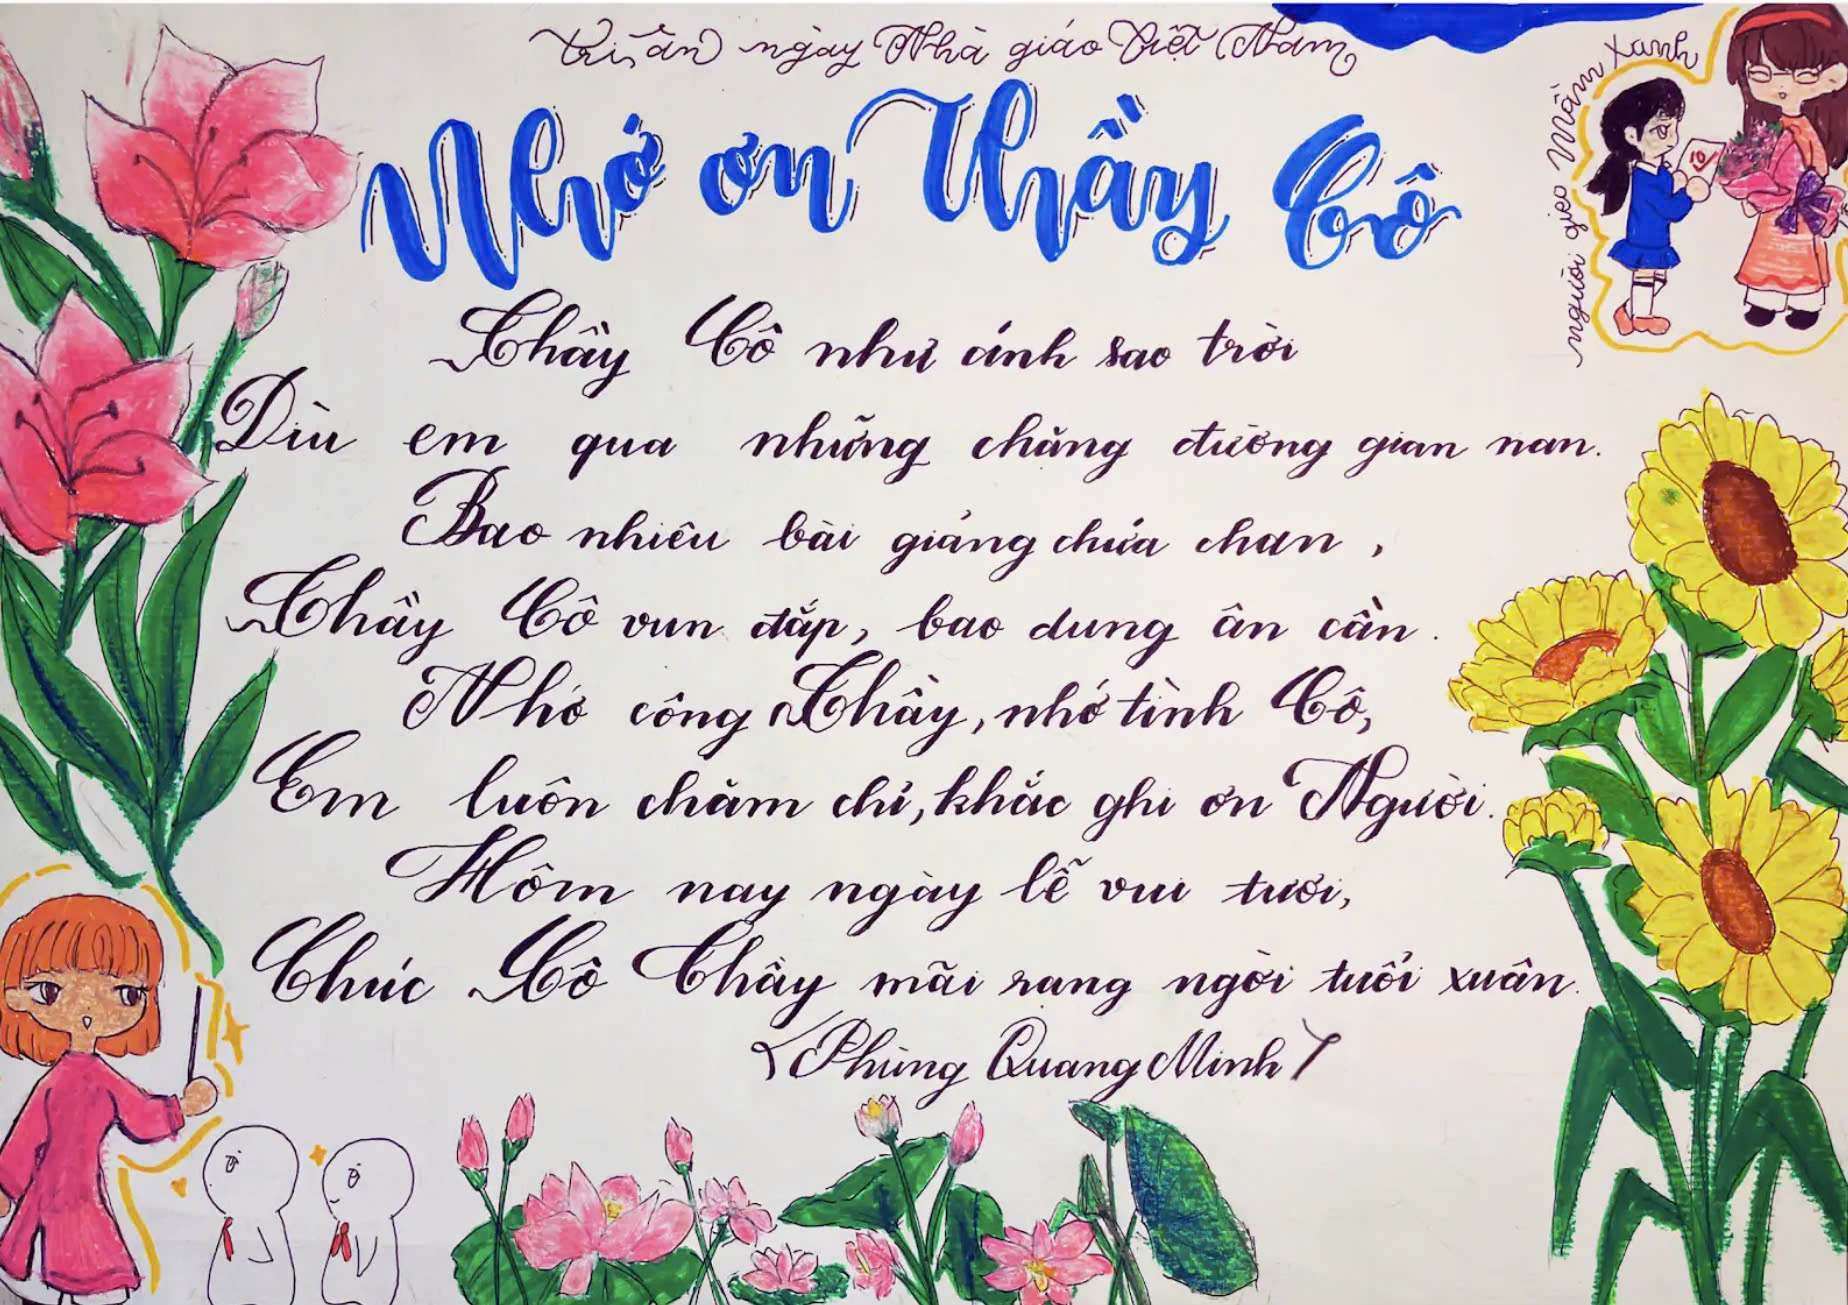 Tri ân ngày Nhà giáo Việt Nam
Nhớ ơn Thầy Cô
người gieo Mầm Xanh
10
Thầy Cô như ánh sao trời
Dìu em qua những chặng đường gian nan.
Bao nhiêu bài giảng chứa chan,
Thầy Cô vun đắp, bao dung ân cần.
Nhớ công Thầy, nhớ tình Cô,
Em luôn chăm chỉ, khắc ghi ơn Người.
Hôm nay ngày lễ vui tươi,
Chúc Cô Thầy mãi rạng ngời tuổi xuân.
(Phùng Quang Minh)